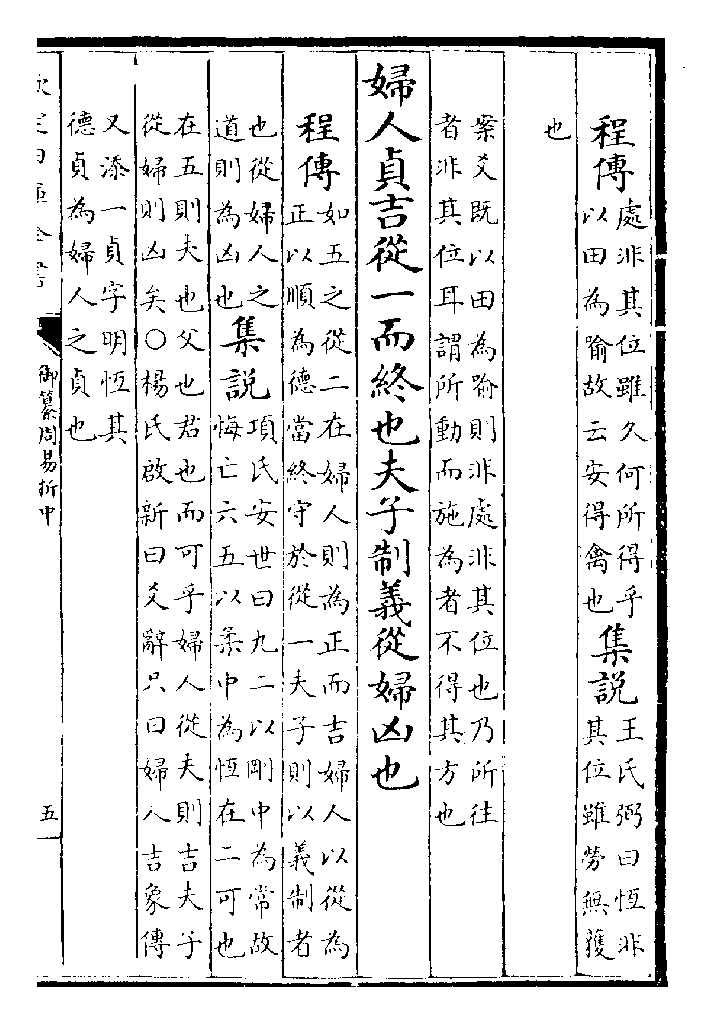 程傳處非其位雖久何所得乎
以田為喻故云安得禽也
集說王氏弼曰恆非
其位雖勞無獲
也
案爻既以田為喻則非處非其位也乃所往
者非其位耳謂所動而施為者不得其方也
婦人貞吉從一而終也夫子制義從婦凶也
程傳如五之從二在婦人則為正而吉婦人以從為
正以順為德當終守於從一夫子則以義制者
也從婦人之
道則為凶也
集說項氏安世曰九二以剛中為常故
悔亡六五以柔中為恆在二可也
在五則夫也父也君也而可乎婦人從夫則吉夫子
從婦則凶矣○楊氏啟新曰爻辭只曰婦人吉象傳
又添一貞字明恆其
德貞為婦人之貞也
欽定四庫全書
御纂周易折中
五